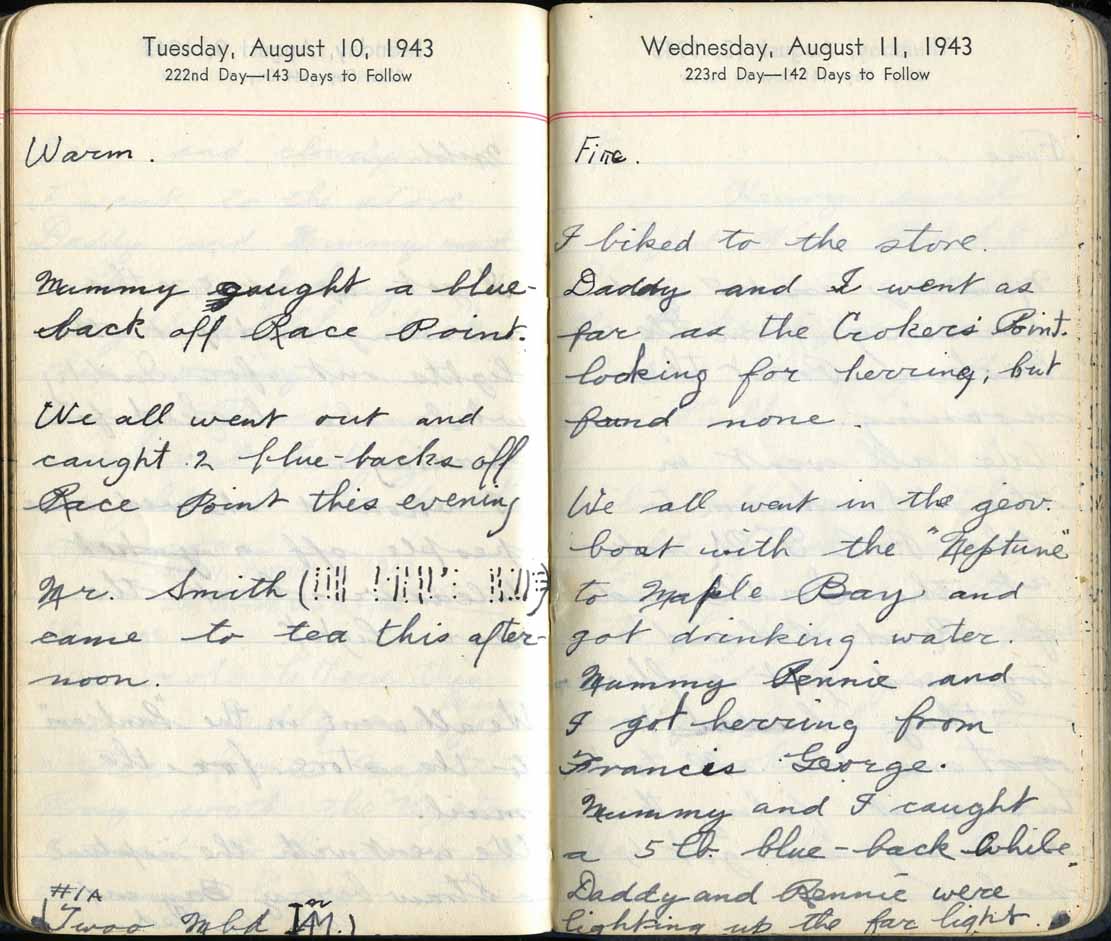 Tuesday, August 10, 1943
222nd Day—143 Days to Follow
Warm.
Mummy caught a blue-
back off Race Point.
We all went out and
caught 2 blue-backs off
Race Point this evening
Mr. Smith (
came to tea this after-
noon.
#1A
Wednesday, August 11, 1943
223rd Day—142 Days to Follow
Fine.
I biked to the store.
Daddy and I went as
far as the Crokers Point.
looking for herring, but
found none.
We all went in the gov.
boat with the "Neptune"
to Maple Bay and
got drinking water.
Mummy Rennie and
I got herring from
Francis George.
Mummy and I caught
a 5 lb. blue-back while
Daddy and Rennie were
lighting up the far light.